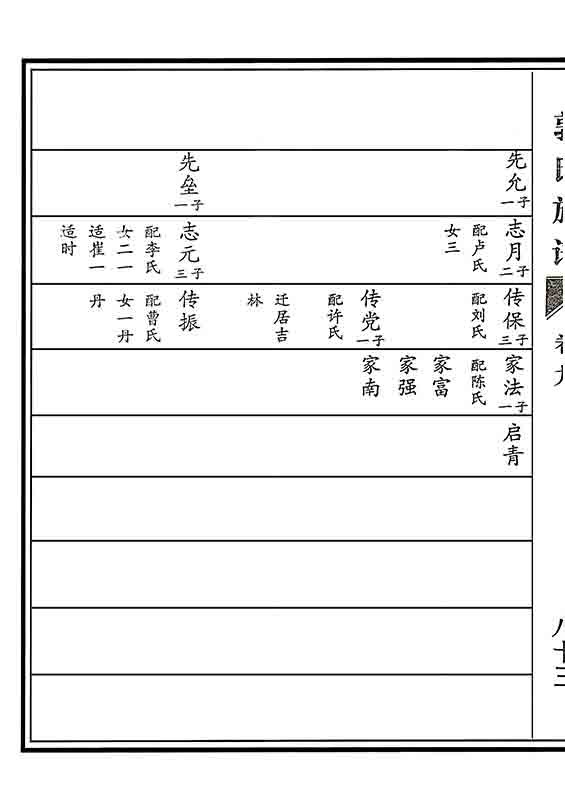 郭氏族谱
卷九
八十三
先允一子
先垒一子
志月二子
配卢氏
女三
志元三子
配李氏
女二一
适崔一
适时
传保三子
配刘氏
传党一子
配许氏
迁居吉
林
传振
配曹氏
女一丹
丹
家法一子
配陈氏
家富
家强
家南
启青